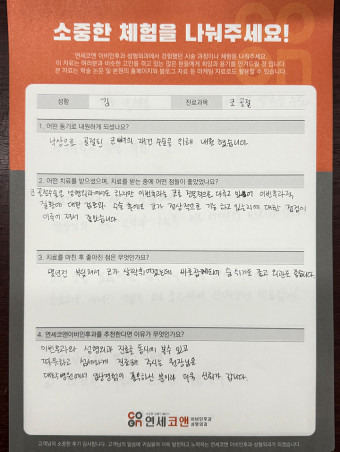 소중한 체험을 나눠주세요!
연세코앤 이비인후과 성형외과에서 경험했던 시술 과정이나 체험을 나눠주세요.
이 자료는 여러분과 비슷한 고민을 하고 있는 많은 분들에게 희망과 용기를 안겨드릴 것 입니다.
본 자료는 학술 논문 및 본원의 홈페이지와 블로그 자료 등 마케팅 자료로도 활용될 수 있습니다.
성함 김 진료과목 코 골절
1. 어떤 동기로 내원하게 되셨나요?
낙상으로 골절된 코뼈의 재건 수술을 위해 내원 했습니다.
2. 어떤 치료를 받으셨으며, 치료를 받는 중에 어떤 점들이 좋았나요?
코 골절수술은 성형외과에서도 하지만 이비인후과는 코를 전문적으로 다루고 있어서 이비인후과적
질환에 대한 검토와 수술 후에도 코가 정상적으로 기능 하고 있는지에 대한 점검이
이루어 져서 좋았습니다.
3. 치료를 마친 후 좋아진 점은 무엇인가요?
몇년전 부딪혀서 코가 살짝 휘어졌었는데 바로잡혀지며 숨 쉬기도 좋고 외관도 좋습니다.
4. 연세코앤이비인후과를 추천한다면 이유가 무엇인가요?
이비인후과와 성형외과 진료를 동시에 볼수 있고
따뜻하고 섬세하게 진료해 주시는 원장님은
대학병원에서 임상경험이 풍부하신 분이라 더욱 신뢰가 갑니다.
연세코앤 이비인후과 성형외과
고객님의 소중한 후기 감사합니다. 고객님의 말씀에 귀 기울여 더욱 발전하고 노력하는 연세코앤 이비인후과 성형외과가 되겠습니다.